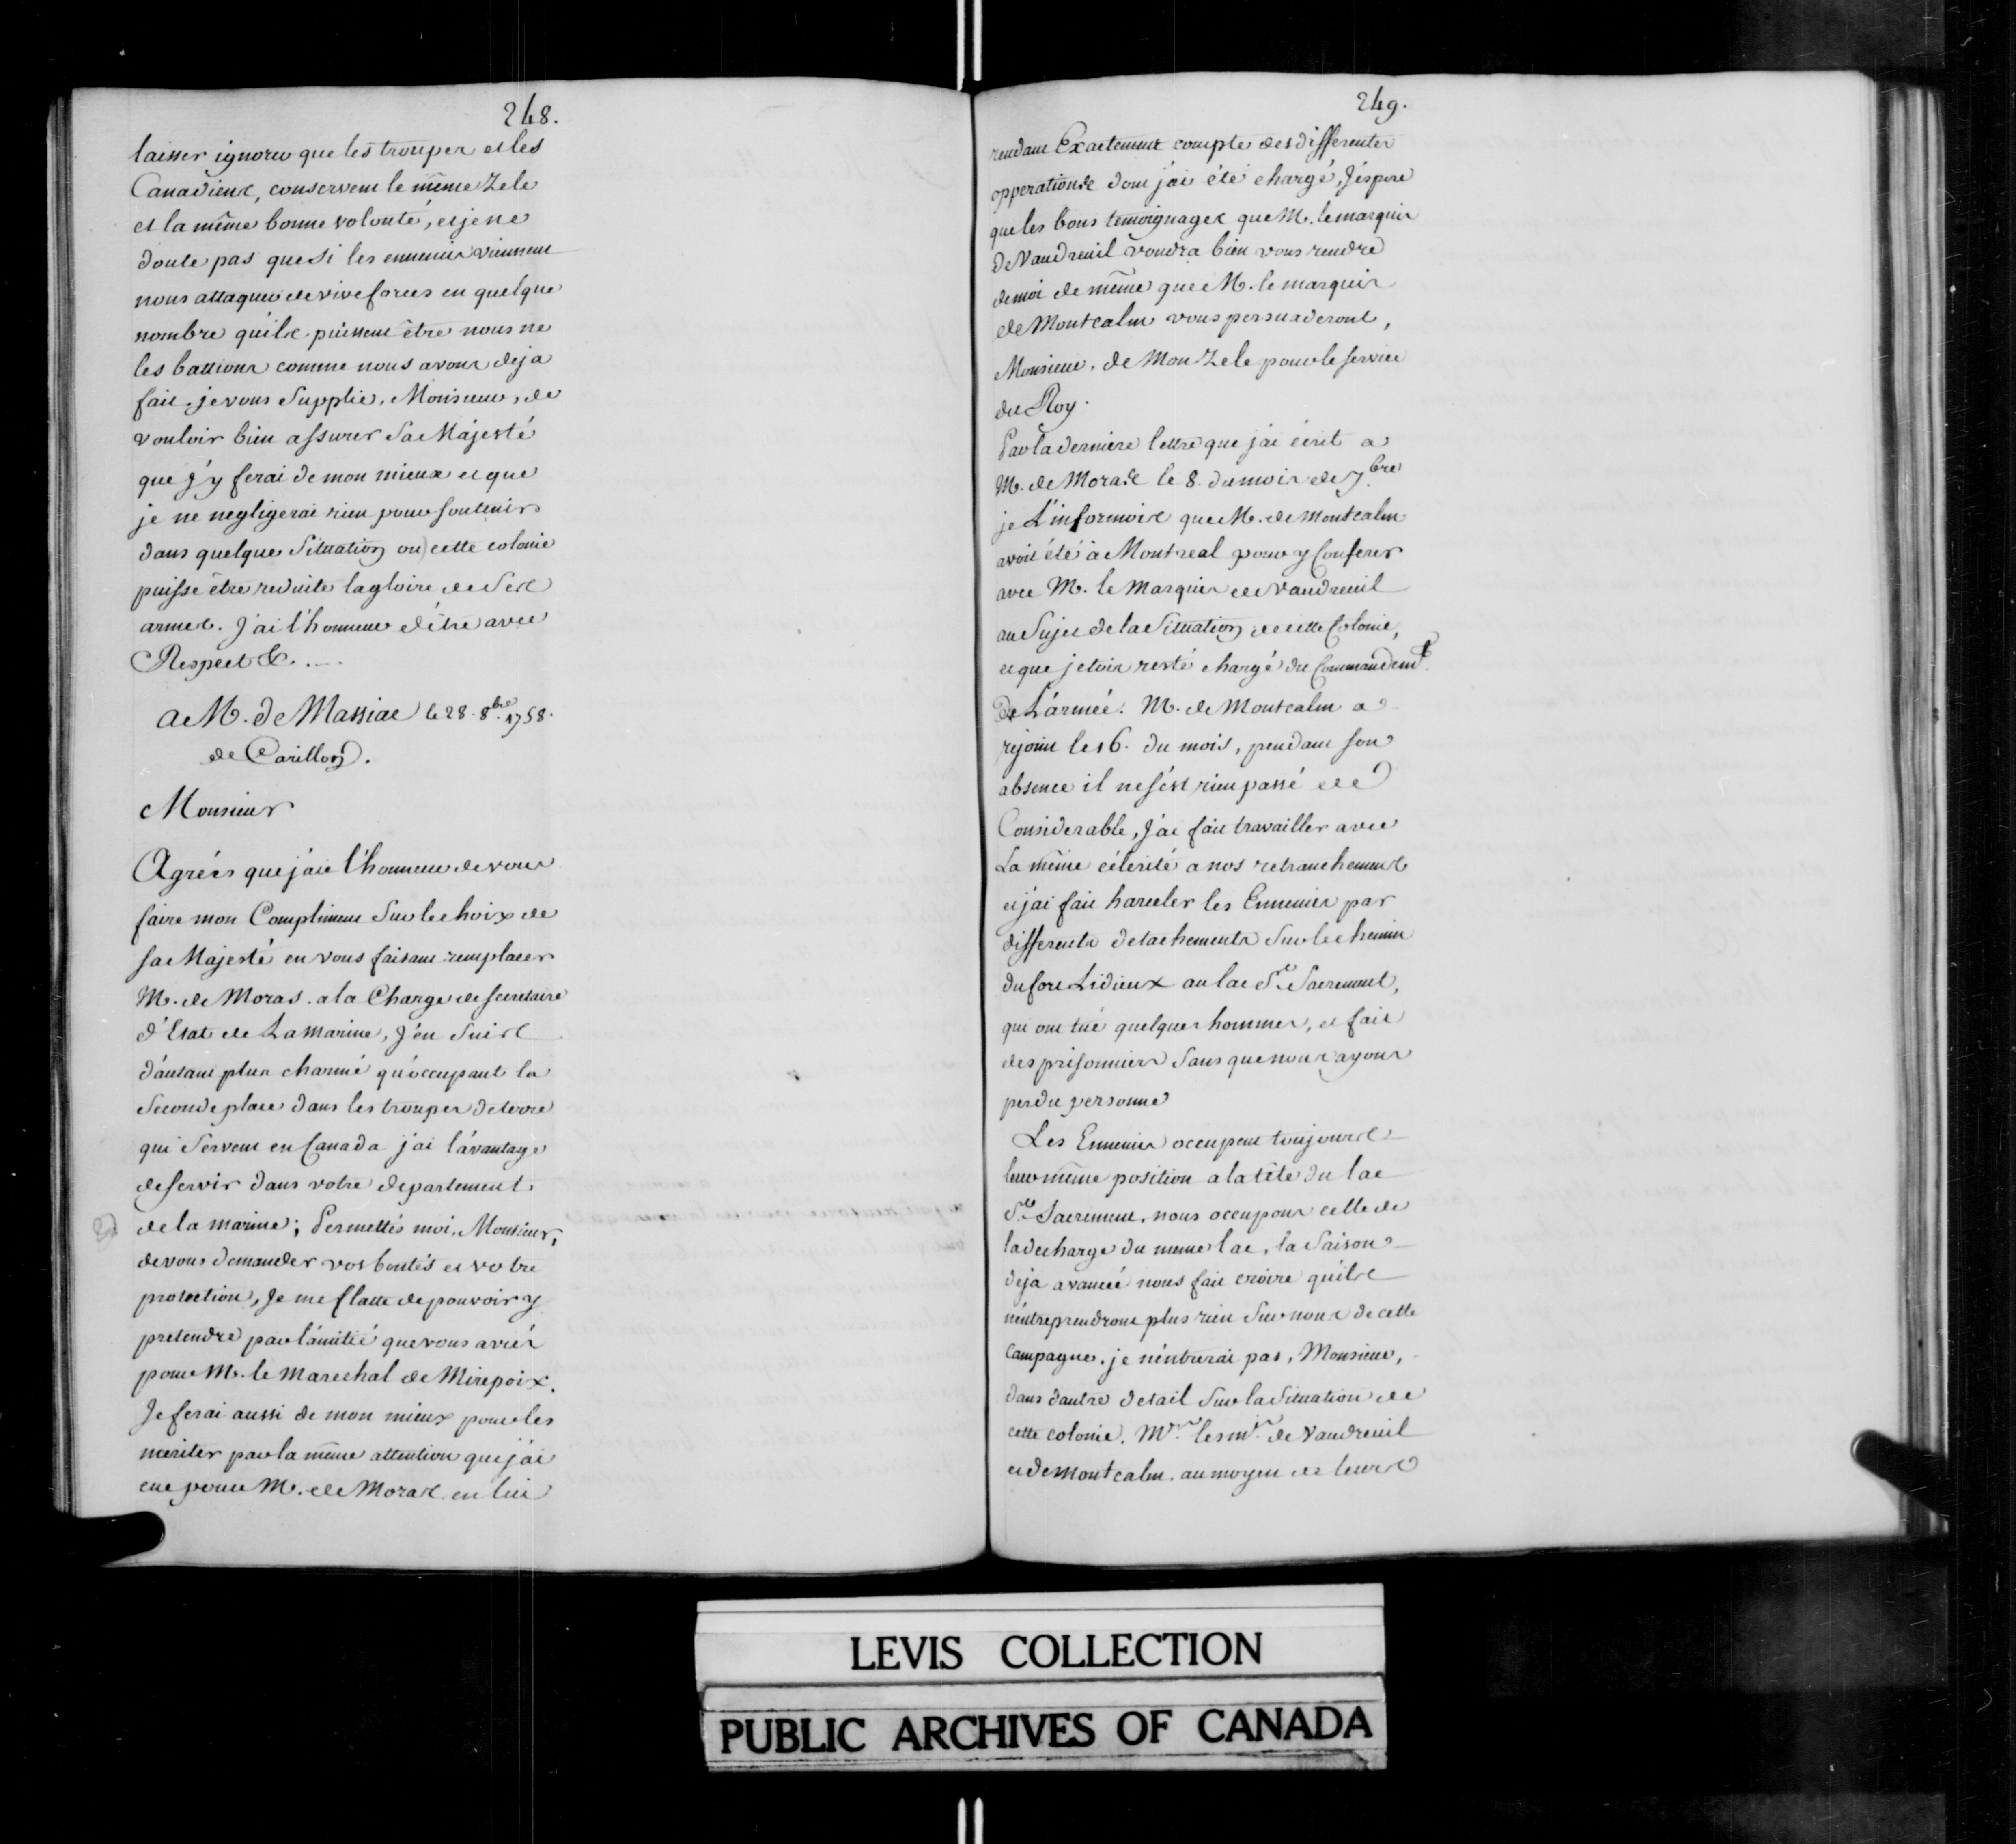 248.
laisser ignorer que les troupes et les
Canadiens, conservent le même Zele
et la même bonne volonté, et je ne
doute pas que si les ennemis viennent
nous attaquer de vive forces en quelque
nombre qu'ils puissent être nous ne
les battions comme nous avons deja
fait. je vous Supplie, Monsieur, de
vouloir bien assurer Sa Majesté
que j'y ferai de mon mieux et que
je ne negligerai rien pour soutenir
dans quelque Situation ou cette colonie
puisse être reduite la gloire de Ses
armes. J'ai l'honneur d'être avec
Respect &c. ....
a M. de Massiac le 28. 8bre. 1758.
de Carillon.
Monsieur
Agréés que j'aie l'honneur de vous
faire mon Compliment Sur le choix de
sa Majesté en vous faisant remplacer
M. de Moras. a la Charge de secretaire
d'Etat de La marine, J'en Suis
d'autant plus charmé qu'occupant la
Seconde place dans les troupes de terre
qui Servent en Canada j'ai l'avantage
de servir dans votre departement
de la marine; Permettés moi, Monsieur,
de vous demander vos bontés et votre
protection, Je me flatte de pouvoir y
pretendre par l'amitié que vous aviés
pour M. le marechal de Mirepoix.
Je ferai aussi de mon mieux pour les
meriter par la même attention que j'ai
eue pour M. de Moras en lui
249.
rendant Exactement compte des differentes
opperations dont j'ai été chargé, J'éspere
que les bons temoignages que M. le marquis
de Vaudreuil voudra bien vous rendre
de moi de même que M. le marquis
de Montcalm vous persuaderont,
Monsieur, de Mon Zele pour le service
du Roy.
Par la derniere lettre que j'ai écrit a
M. de Moras le 8. du mois de 7.bre
je L'informois que M. de montcalm
avoit été à Montreal pour y Conferer
avec M. le Marquis de Vaudreuil
au Sujet de la Situation de cette Colonie,
et que j'etois resté chargé du Commandemt.
De L'armée. M. de Montcalm a
rejoint le 16. du mois, pendant son
absence il ne s'ést rien passé de
Considerable, J'ai fait travailler avec
La même célerité a nos retranchements
et j'ai fait harceler les Ennemis par
differents detachements Sur le chemin
du fort Lidieux au lac St. Sacrement,
qui ont tué quelques hommes, et fait
des prisonniers Sans que nous ayons
perdu personne
Les Ennemis occupent toujours
leur même position a la tête du lac
St. Sacrement. nous occupons celle de
la decharge du meme lac, la Saison
deja avancée nous fait croire qu'ils
n'éntreprendront plus rien Sur nous de cette
Campagne. je n'éntrerai pas, Monsieur,
dans d'autre detail Sur la Situation de
cette colonie. Mrs. les mis. de Vaudreuil
et de montcalm. au moyen de leurs
LEVIS COLLECTION
PUBLIC ARCHIVES OF CANADA